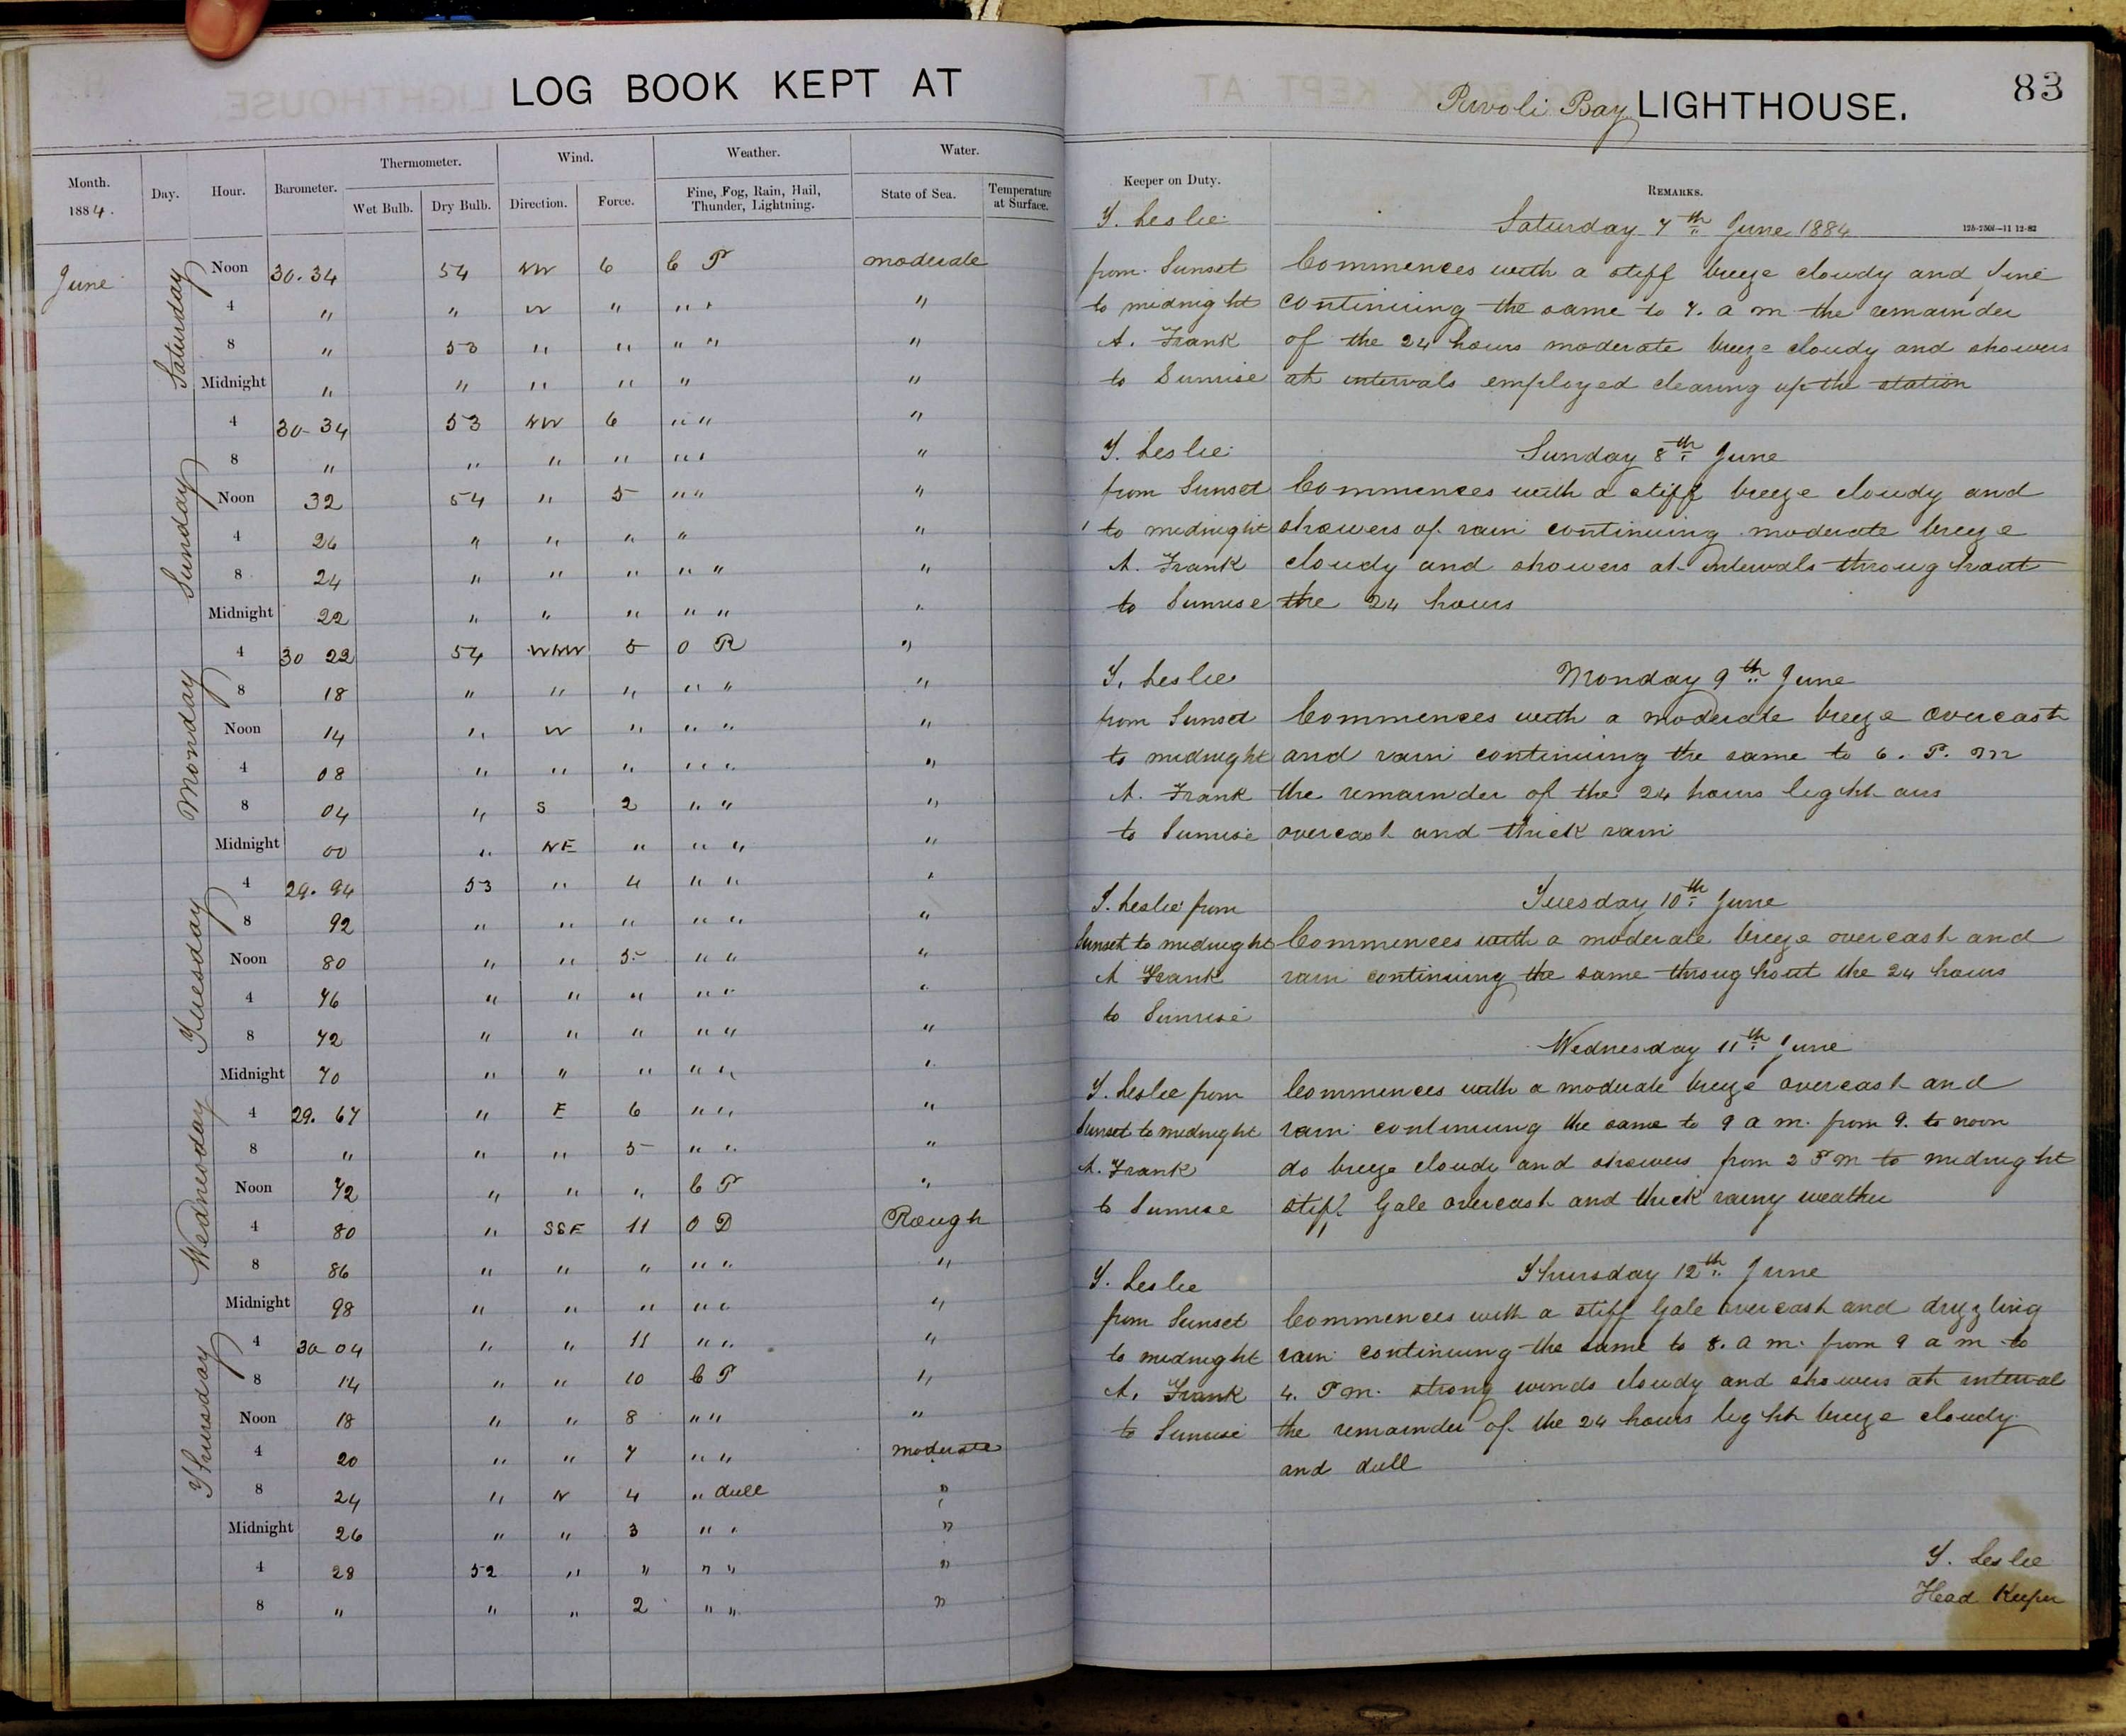 LOG BOOK KEPT AT
Month. Day. Hour. Barometer. Thermometer. Wind. Weather. Water.
1884. Wet Bulb. Dry Bulb. Direction. Force. Fine, Fog, Rain, Hail, Thunder, Lightning. State of Sea. Temperature at Surface.
June Saturday Noon 30.34 54 NW 6 C P moderate
4 " " W " " " "
8 " 53 " " " " "
Midnight " " " " " "
4 30-34 53 NW 6 " " "
Sunday 8 " " " " " " "
Noon 32 54 " 5 " " "
4 26 " " " " "
8 24 " " " " " "
Midnight 22 " " " " " "
4 30 22 54 WNW 5 O R "
Monday 8 18 " " " " " "
Noon 14 " W " " " "
4 08 " " " " " "
8 04 " S 2 " " "
Midnight 00 " NE " " " "
4 29.94 53 " 4 " " "
Tuesday 8 92 " " " " " "
Noon 80 " " 5 " " "
4 76 " " " " " "
8 72 " " " " " "
Midnight 70 " " " " " "
Wednesday 4 29.67 " E 6 " " "
8 " " " 5 " " "
Noon 72 " " " C P "
4 80 " SSE 11 O D Rough
8 86 " " " " " "
Midnight 98 " " " " " "
Thursday 4 30-04 " " 11 " " "
8 14 " " 10 C P "
Noon 18 " " 8 " " "
4 20 " " 7 " " moderate
8 24 " N 4 " dull "
Midnight 26 " " 3 " " "
4 28 52 " " " " "
8 " " " 2 " " "
Rivoli Bay LIGHTHOUSE.
83
Keeper on Duty. REMARKS.
T. Leslie Saturday 7th June 1884
from Sunset Commences with a stiff breeze cloudy and fine
to midnight continuing the same to 7. a m the remainder
A. Frank of the 24 hours moderate breeze cloudy and showers
to Sunrise at intervals employed clearing up the station
T. Leslie Sunday 8th June
from Sunset Commences with a stiff breeze cloudy and
to midnight showers of rain continuing moderate breeze
A. Frank cloudy and showers at intervals throughout
to Sunrise the 24 hours
T. Leslie Monday 9th June
from Sunset Commences with a moderate breeze overcast
to midnight and rain continuing the same to 6. P. m
A. Frank the remainder of the 24 hours light airs
to Sunrise overcast and thick rain
T. Leslie from Tuesday 10th June
Sunset to midnight Commences with a moderate breeze overcast and
A Frank rain continuing the same throughout the 24 hours
to Sunrise
Wednesday 11th June
T. Leslie from Commences with a moderate breeze overcast and
Sunset to midnight rain continuing the same to 9 a m. from 9. to noon
A. Frank do breeze cloudy and showers from 2 P m to midnight
to Sunrise stiff Gale overcast and thick rainy weather
T. Leslie Thursday 12th June
from Sunset Commences with a stiff Gale overcast and dryzling
to midnight rain continuing the same to 8. a m. from 9 a m to
A. Frank 4. P m. strong winds cloudy and showers at interval
to Sunrise the remainder of the 24 hours light breeze cloudy
and dull
T. Leslie
Head Keeper